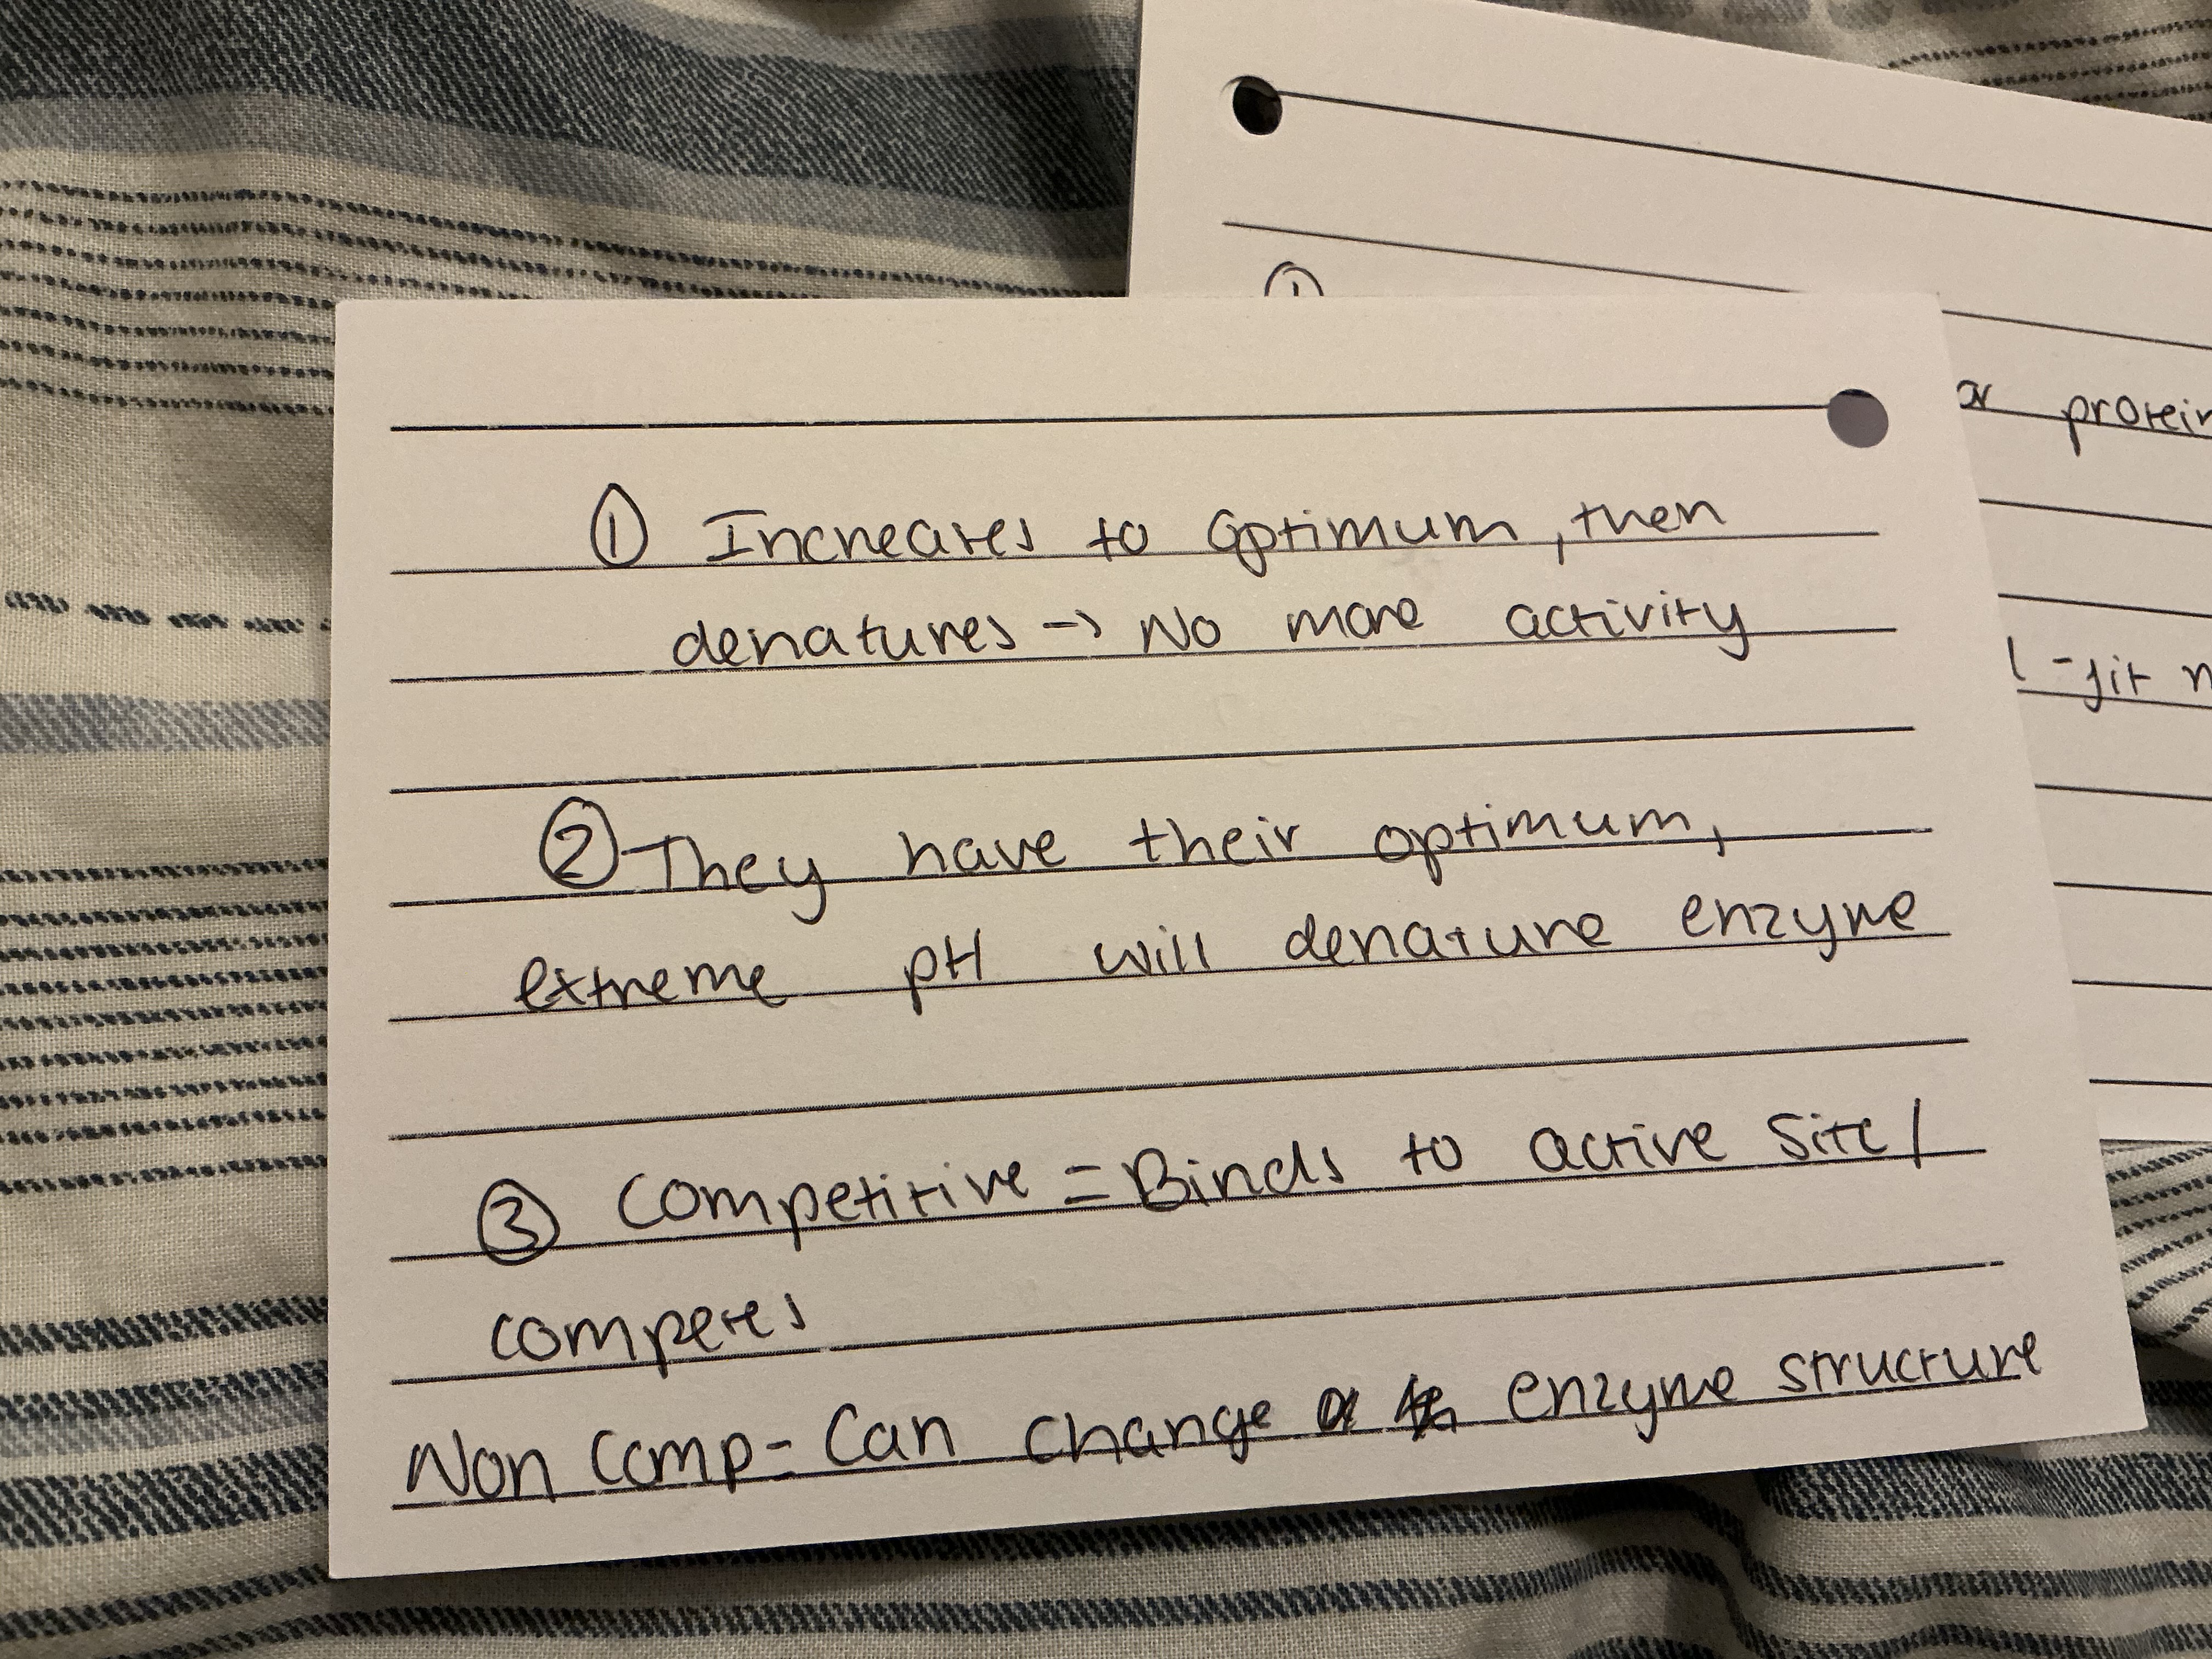 ① Increases to optimum, then
denatures → No more activity
② They have their optimum,
extreme pH will denature enzyme
③ Competitive = Binds to active site/
competes
Non comp - Can change enzyme structure
①
protein
-fit